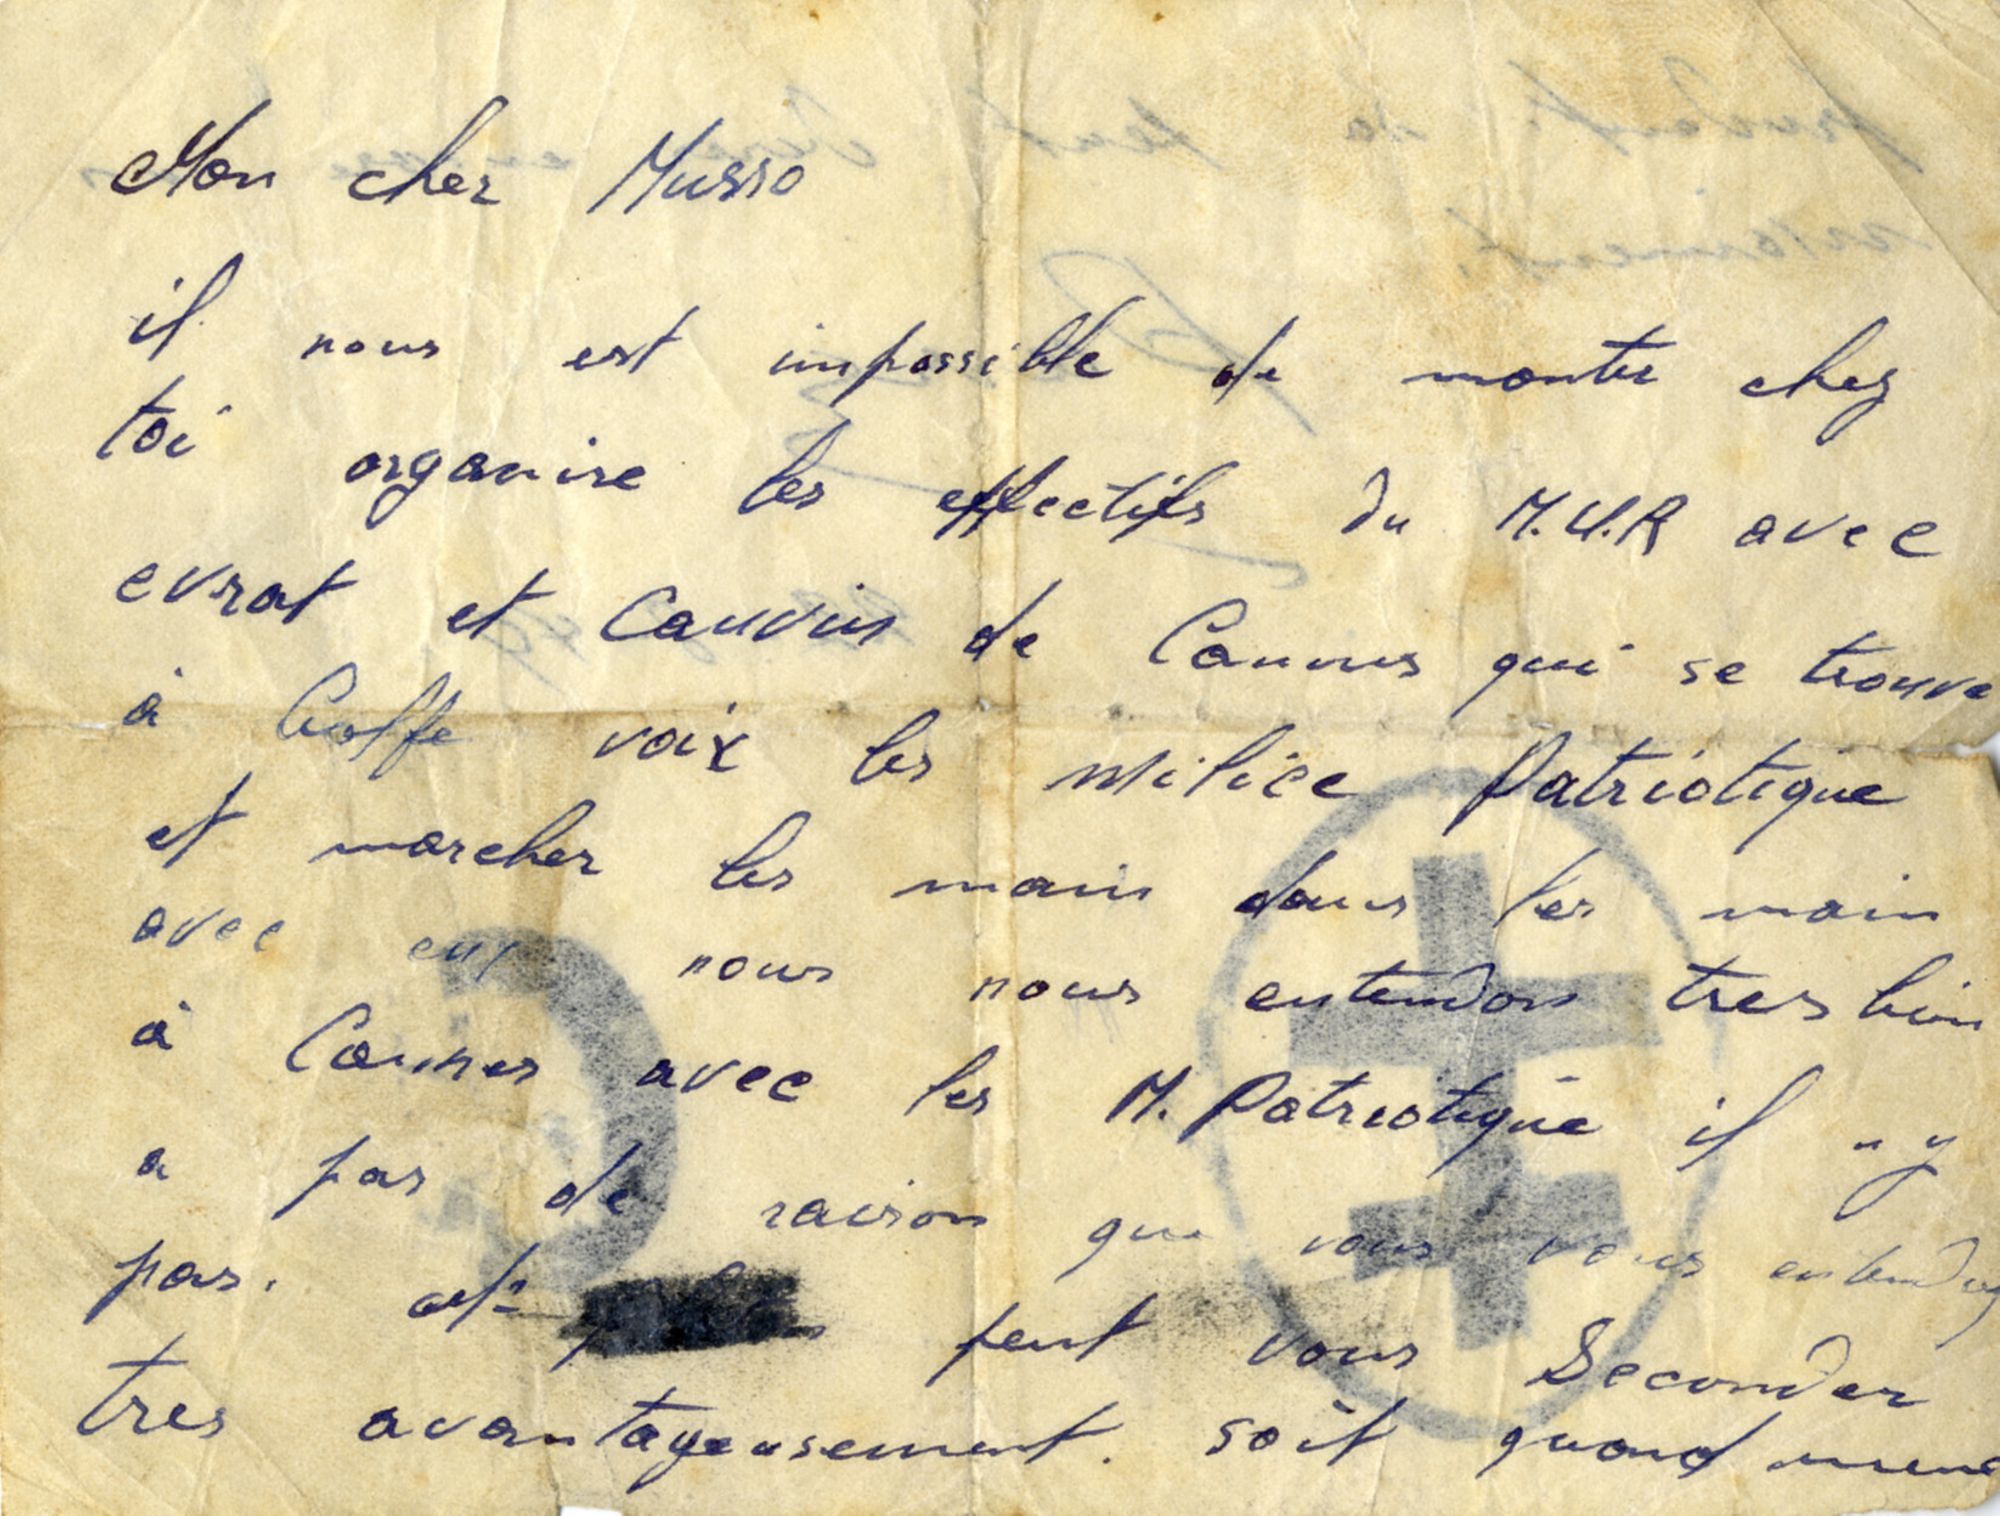 Mon cher Musso
il nous est impossible de monter chez
toi organise les effectifs du M.U.R avec
evrat et Cauvin de Cannes qui se trouve
à Golfe voix les milice Patriotique
et marcher les main dans les main
avec eux nous nous entendons tres bien
à Cannes avec les M. Patriotique il n y
a pas de raison que vous vous entendez
pas. peut vous Seconder
tres avantageusement. soit quand meme